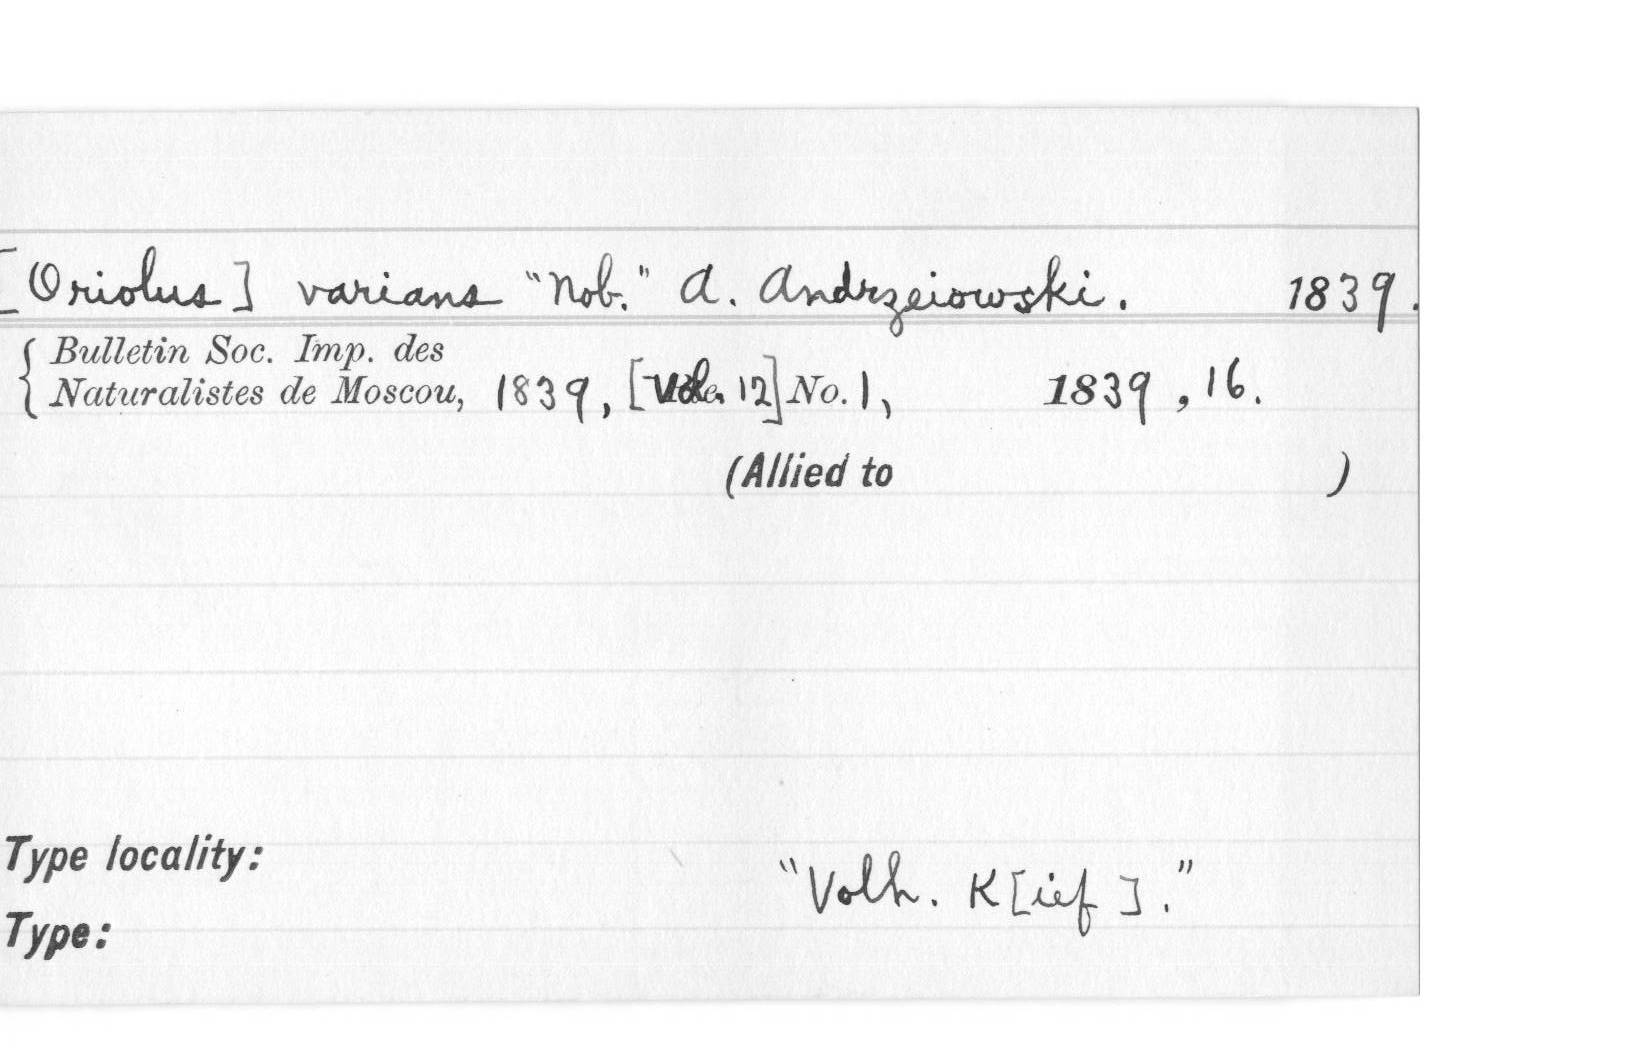 [Oriolus] varians "Nob." A. Andrzeiowski. 1839.
{ Bulletin Soc. Imp. des
Naturalistes de Moscou, 1839, [Vol. 12] No. 1, 1839, 16.
(Allied to )
Type locality:
"Volh. K[ief]."
Type: